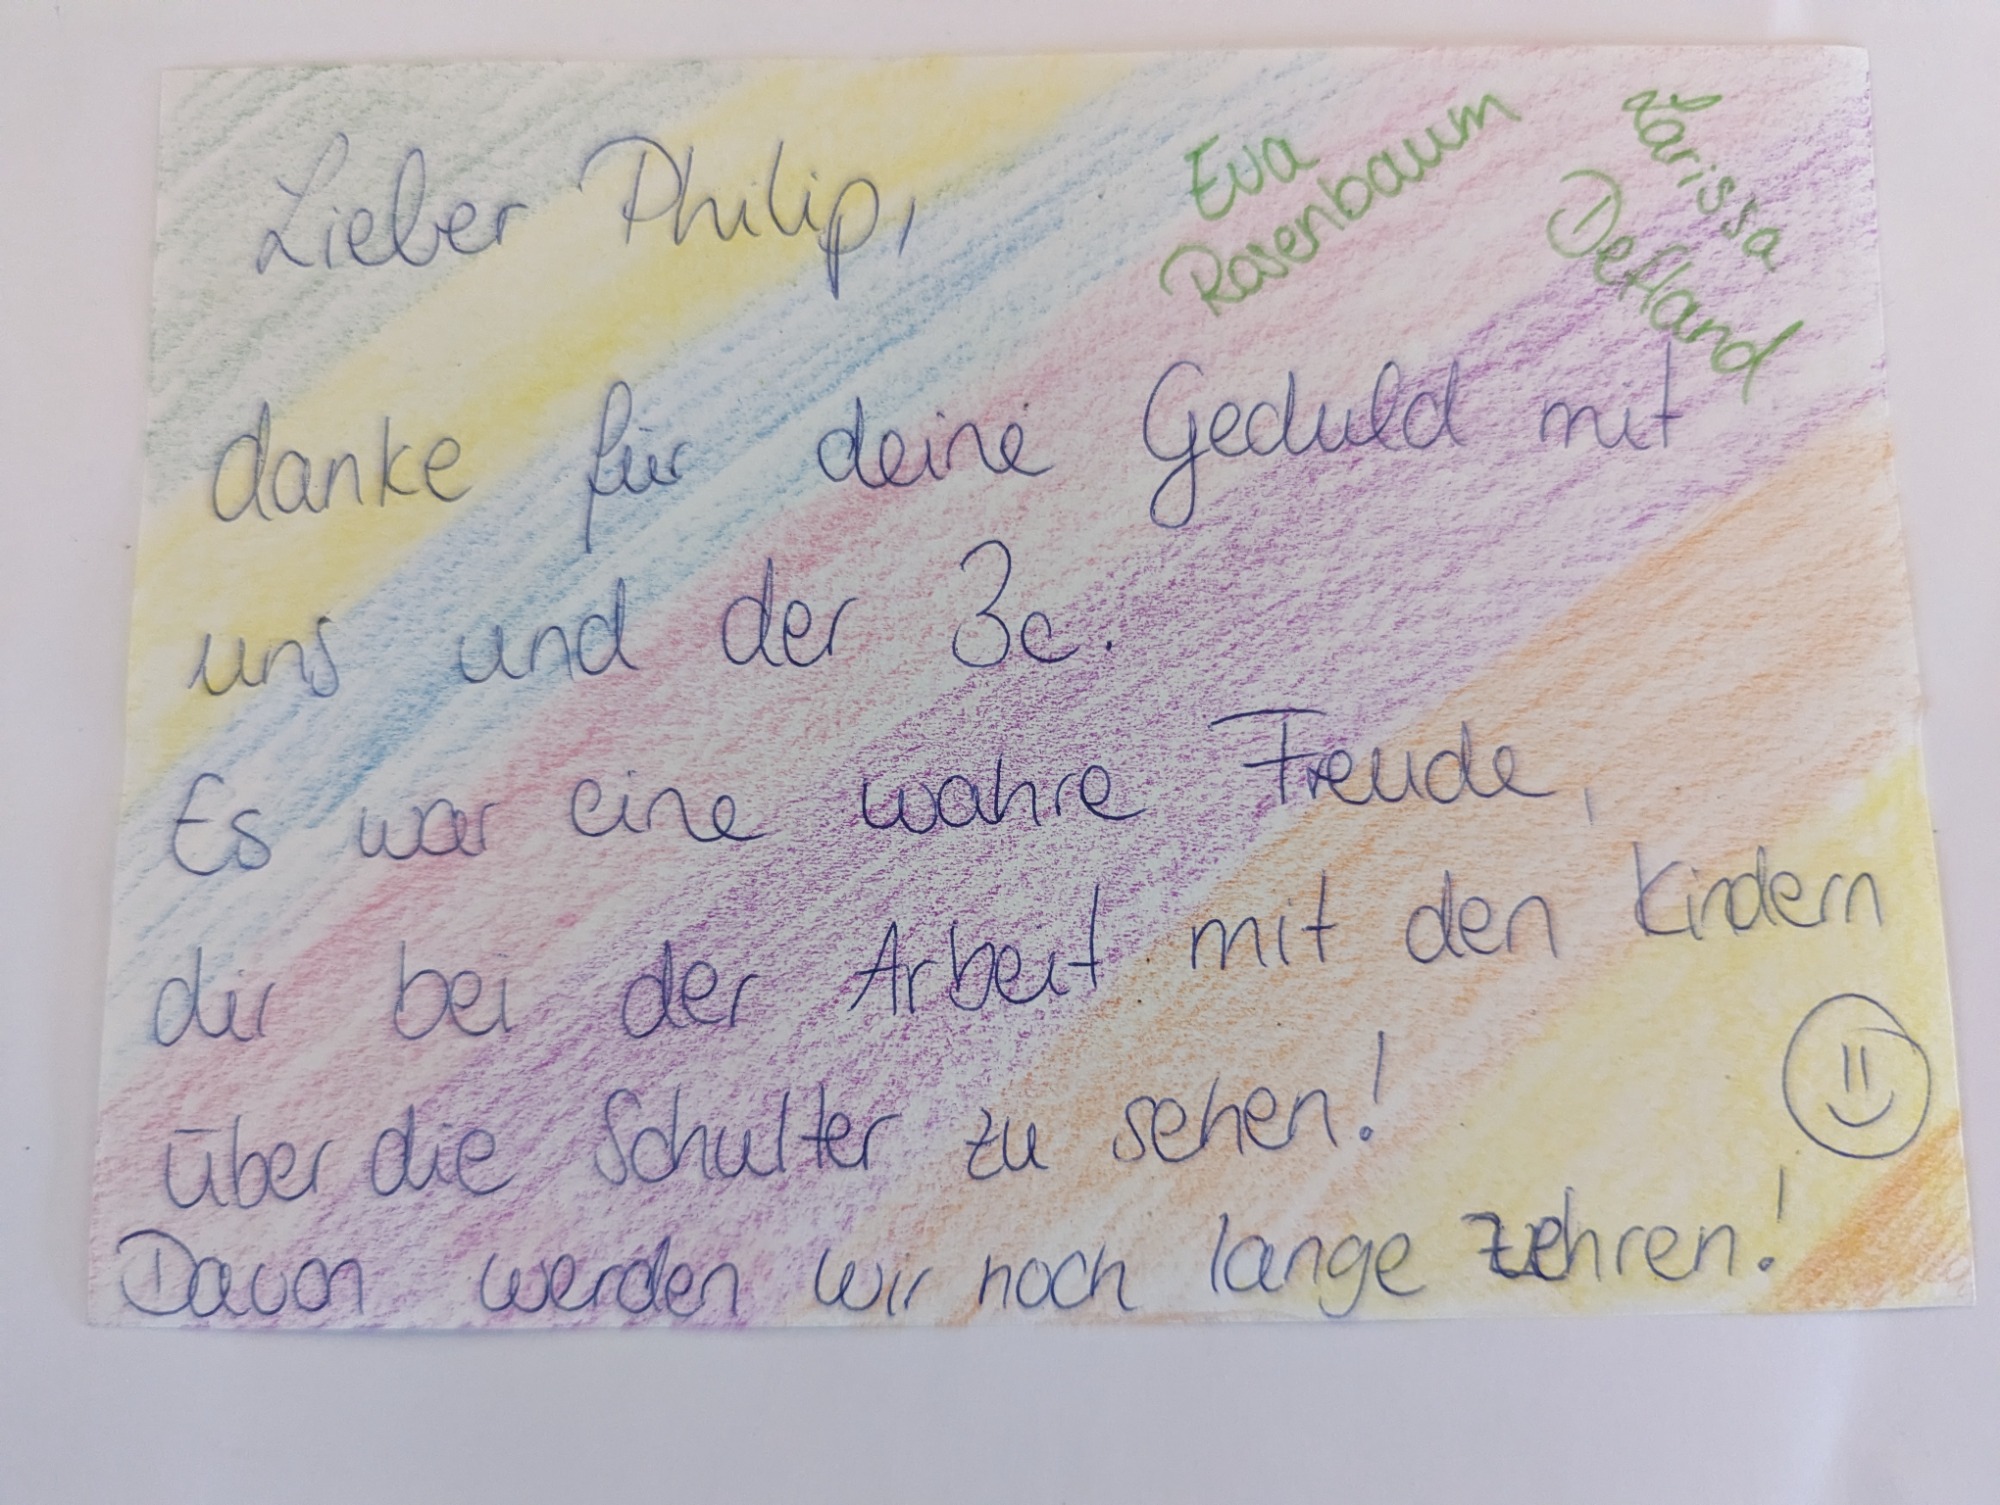 Lieber Philip,
Eva
Rosenbaum
Larissa
Defland
danke für deine Geduld mit
uns und der 3c.
Es war eine wahre Freude,
dir bei der Arbeit mit den Kindern
über die Schulter zu sehen!
Davon werden wir noch lange zehren!